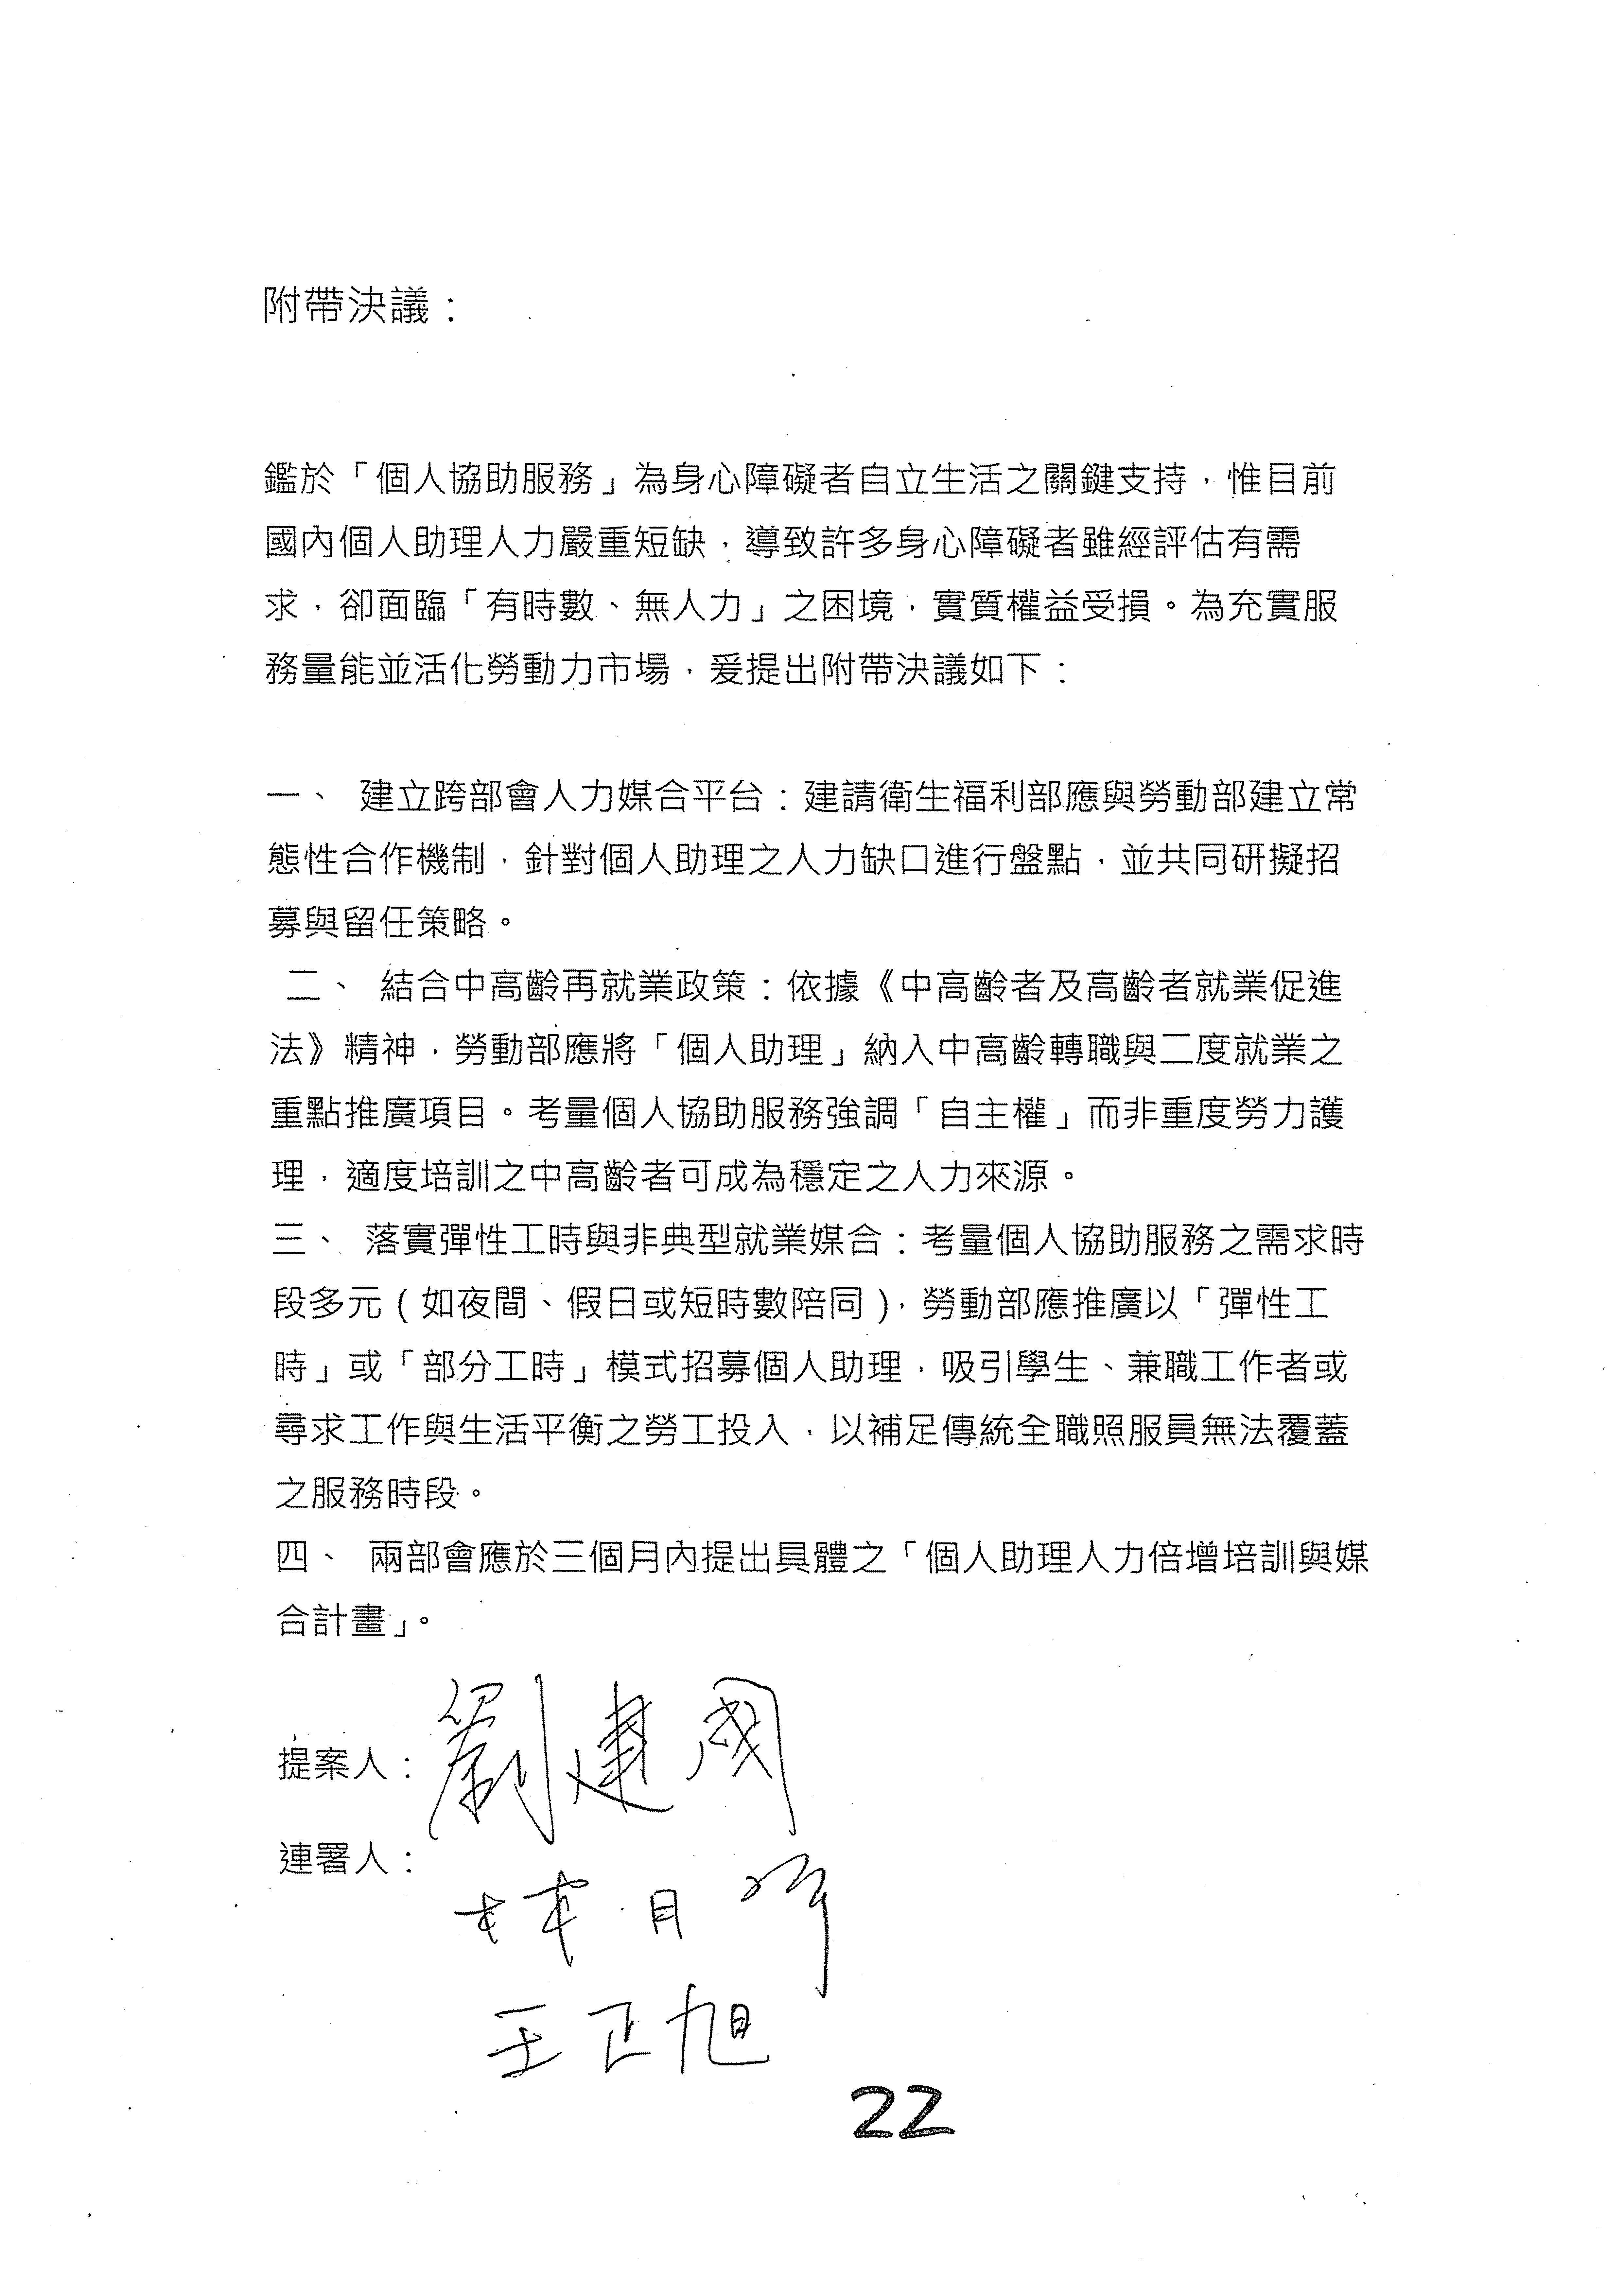 附帶決議：
鑑於「個人協助服務」為身心障礙者自立生活之關鍵支持，惟目前
國內個人助理人力嚴重短缺，導致許多身心障礙者雖經評估有需
求，卻面臨「有時數、無人力」之困境，實質權益受損。為充實服
務量能並活化勞動力市場，爰提出附帶決議如下：
一、 建立跨部會人力媒合平台：建請衛生福利部應與勞動部建立常
態性合作機制，針對個人助理之人力缺口進行盤點，並共同研擬招
募與留任策略。
二、 結合中高齡再就業政策：依據《中高齡者及高齡者就業促進
法》精神，勞動部應將「個人助理」納入中高齡轉職與二度就業之
重點推廣項目。考量個人協助服務強調「自主權」而非重度勞力護
理，適度培訓之中高齡者可成為穩定之人力來源。
三、 落實彈性工時與非典型就業媒合：考量個人協助服務之需求時
段多元(如夜間、假日或短時數陪同)，勞動部應推廣以「彈性工
時」或「部分工時」模式招募個人助理，吸引學生、兼職工作者或
尋求工作與生活平衡之勞工投入，以補足傳統全職照服員無法覆蓋
之服務時段。
四、 兩部會應於三個月內提出具體之「個人助理人力倍增培訓與媒
合計畫」。
提案人：劉建國
連署人：
林月琴
王正旭
22